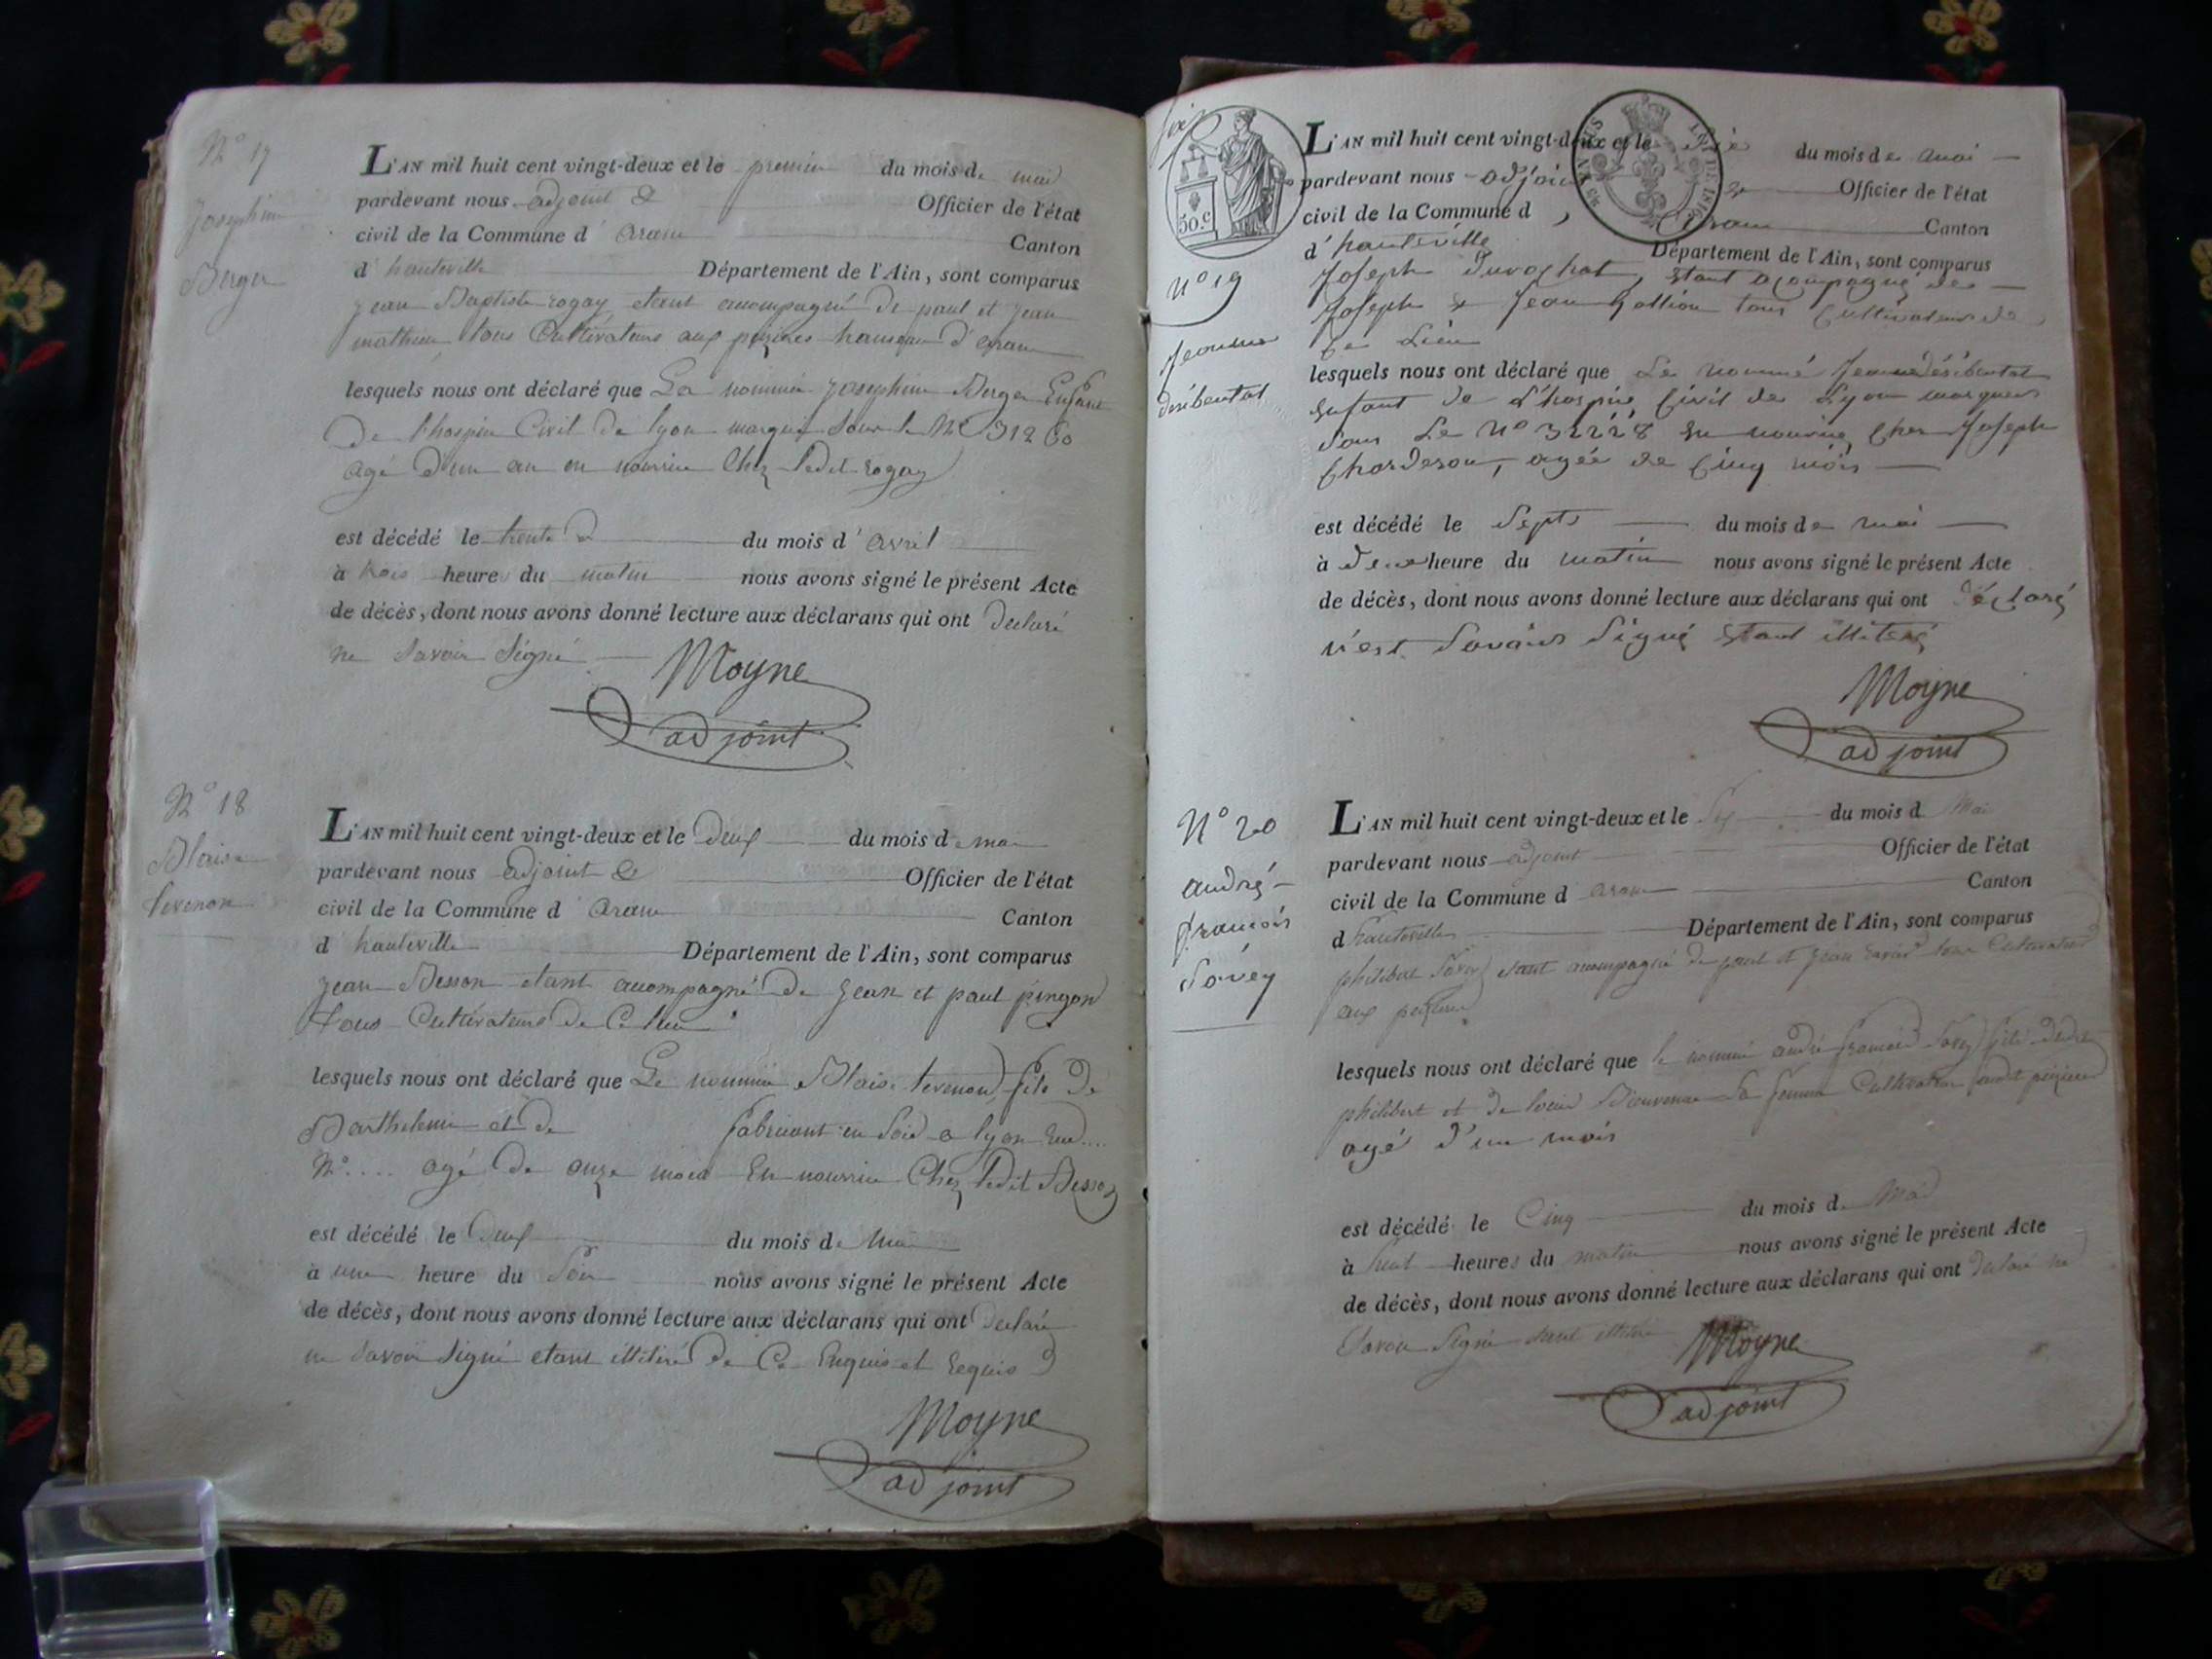 N° 17
Josephine
Berger
L'AN mil huit cent vingt-deux et le premier du mois de mai
pardevant nous adjoint & Officier de l'état
civil de la Commune d' aranc Canton
d' hauteville Département de l'Ain, sont comparus
jean Baptiste rogay etant accompagné de paul et jean
mathieu tous Cultivateurs aux hameau d'aranc
lesquels nous ont déclaré que La nommée josephine Berger Enfant
De l'hospice Civil De lyon marquée Sous le N° 31260
agé D'un an en nourrice Chez ledit rogay
est décédé le trente du mois d' avril
à trois heures du matin nous avons signé le présent Acte
de décès, dont nous avons donné lecture aux déclarans qui ont declaré
ne Savoir Signé
Moyne
adjoint
N° 18
Blaise
tevenon
L'AN mil huit cent vingt-deux et le Deux du mois de mai
pardevant nous adjoint & Officier de l'état
civil de la Commune d' aranc Canton
d' hauteville Département de l'Ain, sont comparus
jean Besson etant accompagné De jean et paul pingon
tous Cultivateurs De Ce lieu
lesquels nous ont déclaré que Le nommé Blaise tevenon fils De
Barthelemi et de fabricant en Soie a lyon Rue....
N°.... agé De onze mois En nourrice Chez ledit Besson
est décédé le Deux du mois de Mai
à une heure du Soir nous avons signé le présent Acte
de décès, dont nous avons donné lecture aux déclarans qui ont declaré
ne Savoir Signé etant illitéré De Ce Enquis et Requis
Moyne
adjoint
six
50.c
TIMBRE
LOI DE 1816
N° 19
Jeanne
desibentat
L'AN mil huit cent vingt-deux et le du mois de mai
pardevant nous adjoint Officier de l'état
civil de la Commune d' aranc Canton
d' hauteville Département de l'Ain, sont comparus
Joseph Juvachat, Etant acompagné de
Joseph & Jean Gallion tous Cultivateurs de
Ce Lieu
lesquels nous ont déclaré que La nommé Jeanne desibentat
Enfant de L'hospice Civil de Lyon marquer
Sous Le N° 32228 En nourrice Cher Joseph
Chardeson, agée de Cinq mois
est décédé le Septs du mois de mai
à deux heure du matin nous avons signé le présent Acte
de décès, dont nous avons donné lecture aux déclarans qui ont déclaré
n'est Savoirs Signé Etant illiteré
Moyne
adjoint
N° 20
andré
francois
Savey
L'AN mil huit cent vingt-deux et le Six du mois d Mai
pardevant nous adjoint Officier de l'état
civil de la Commune d aranc Canton
d hauteville Département de l'Ain, sont comparus
philibert Savey etant accompagné De paul et jean Savey tous Cultivateurs
aux
lesquels nous ont déclaré que le nommé andré francois Savey fils dudit
philibert et De Bienvenue Sa femme Cultivateur
agé d'un mois
est décédé le Cinq du mois de Mai
à huit heures du matin nous avons signé le présent Acte
de décès, dont nous avons donné lecture aux déclarans qui ont declaré ne
Savoir Signé etant illitéré
Moyne
adjoint